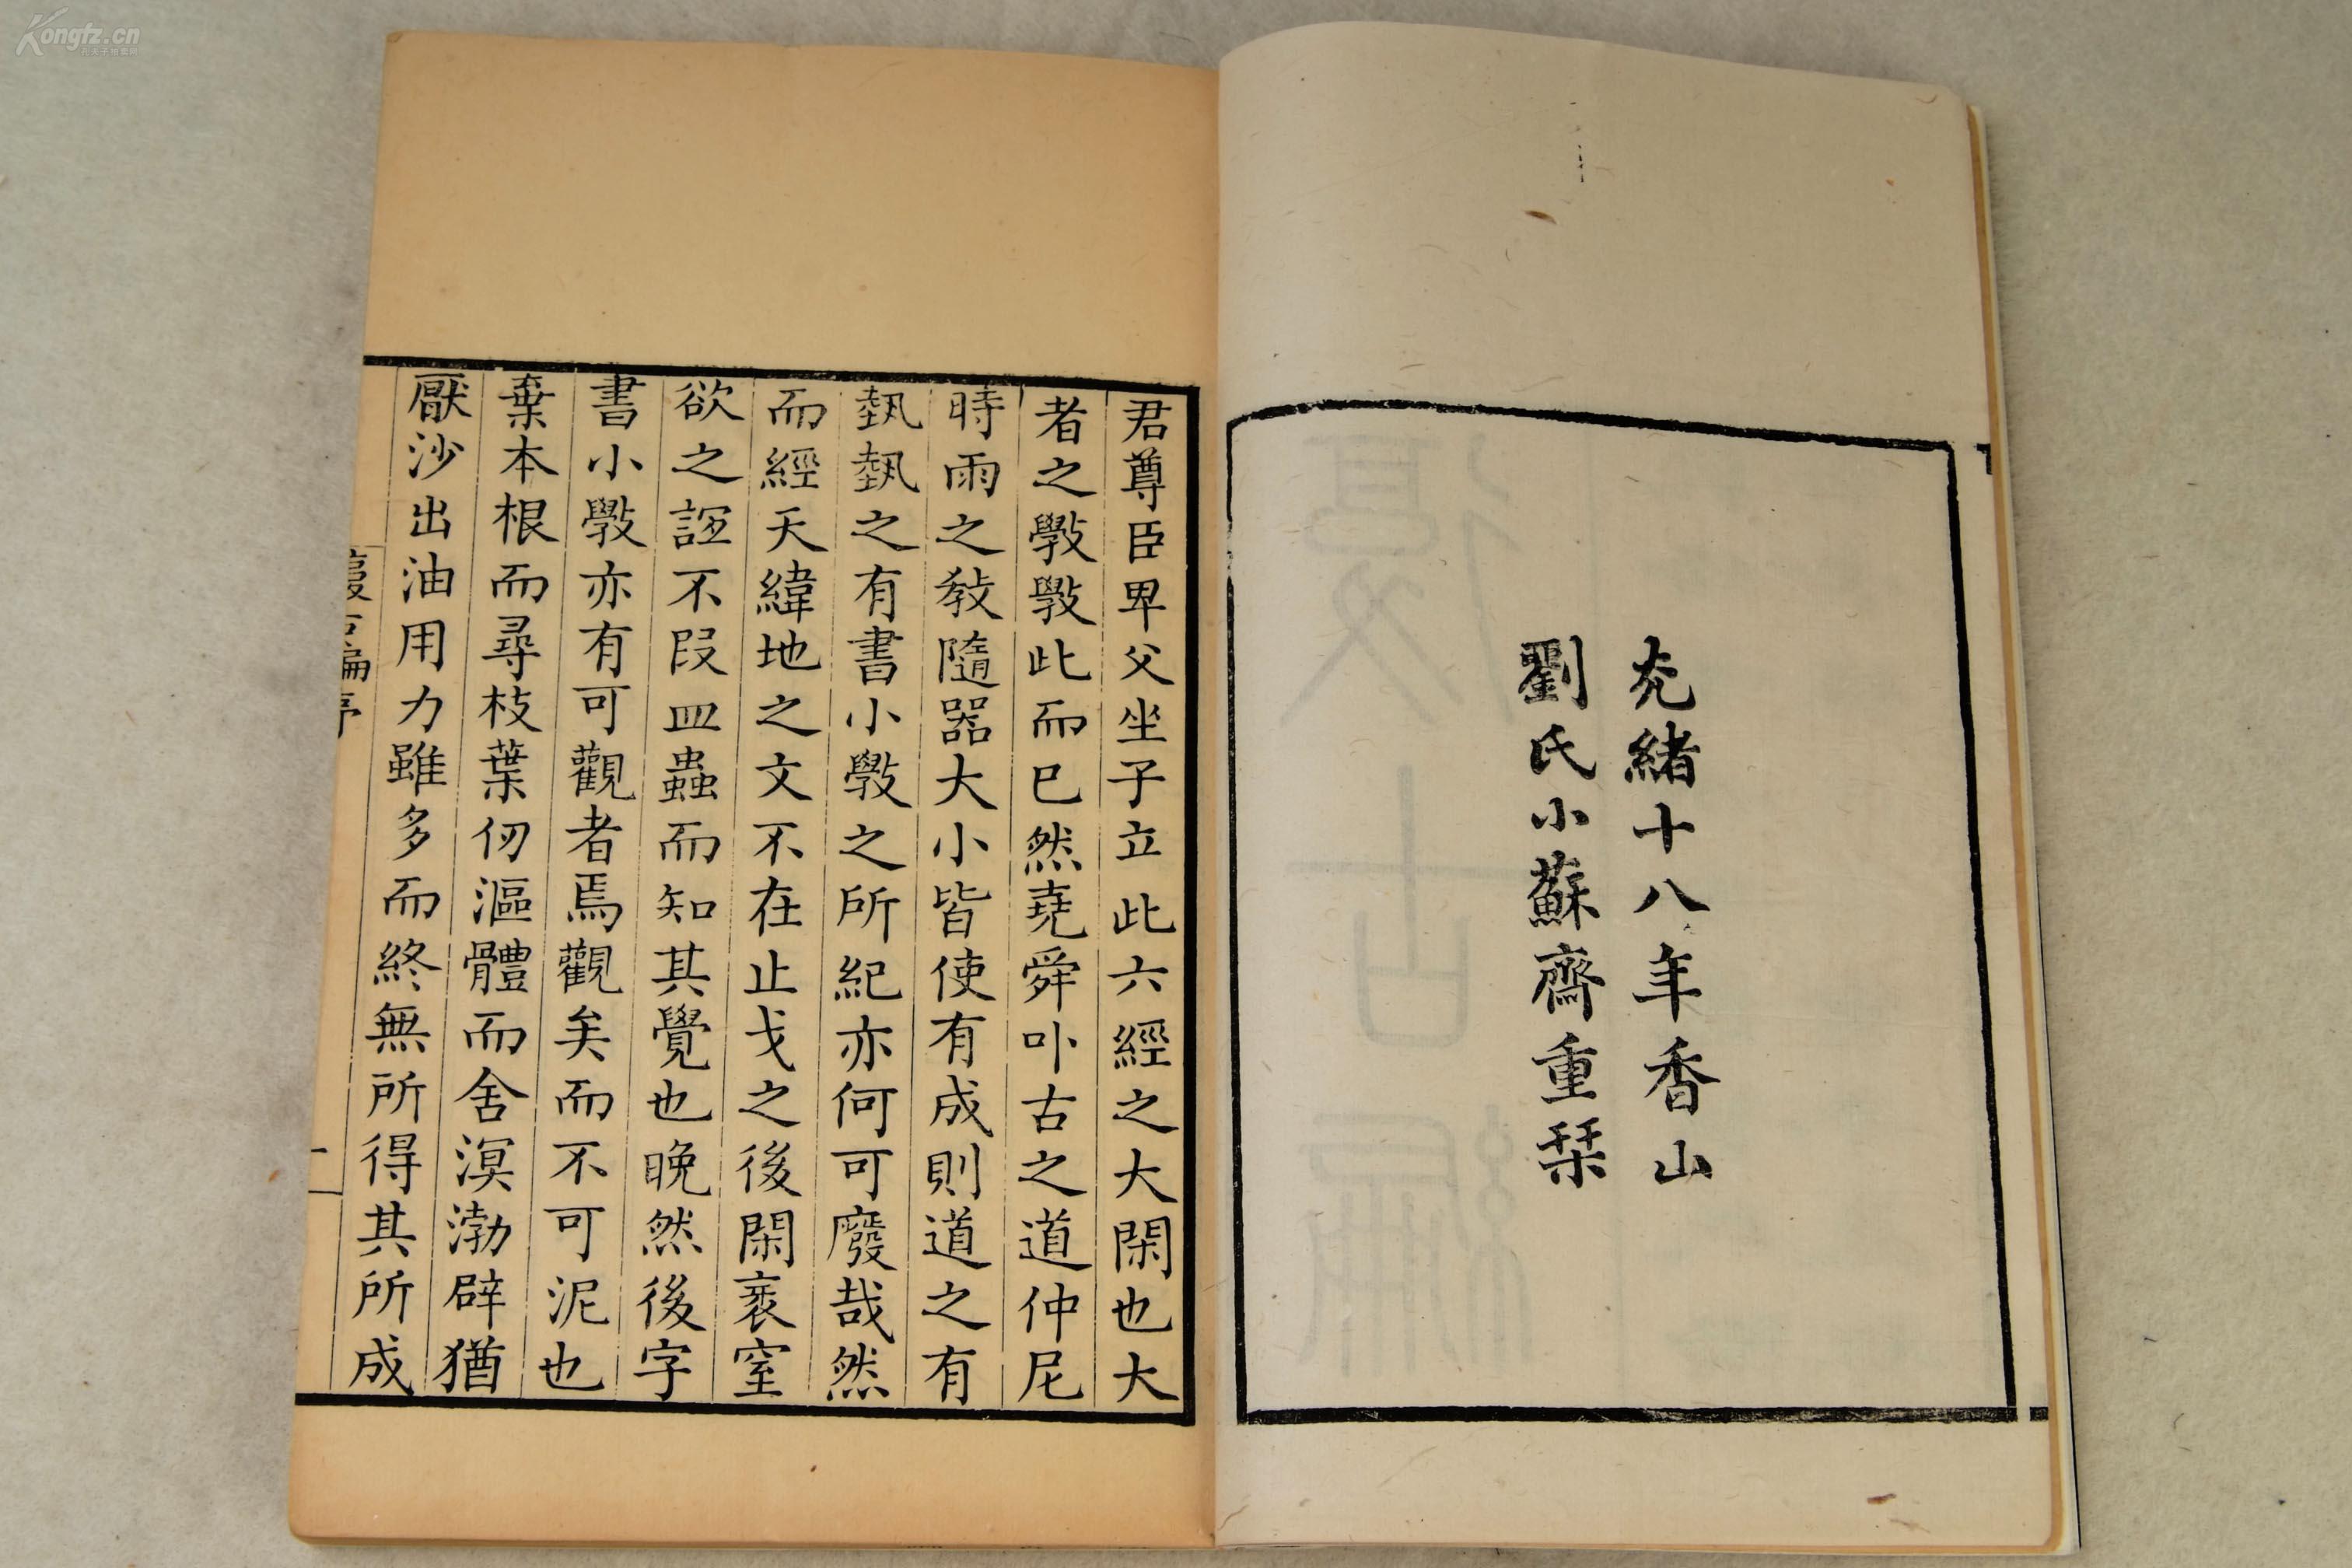 光緒十八年香山
劉氏小蘇齋重栞
君尊臣卑父坐子立此六經之大閑也大
者之斆斆此而已然堯舜卟古之道仲尼
時雨之敎隨器大小皆使有成則道之有
埶埶之有書小斆之所紀亦何可廢哉然
而經天緯地之文不在止戈之後閑衺窒
欲之誣不叚皿蟲而知其覺也晚然後字
書小斆亦有可觀者焉觀矣而不可泥也
棄本根而尋枝葉仞漚體而舍溟渤辟猶
厭沙出油用力雖多而終無所得其所成
復古編序
一
Kongfz.cn